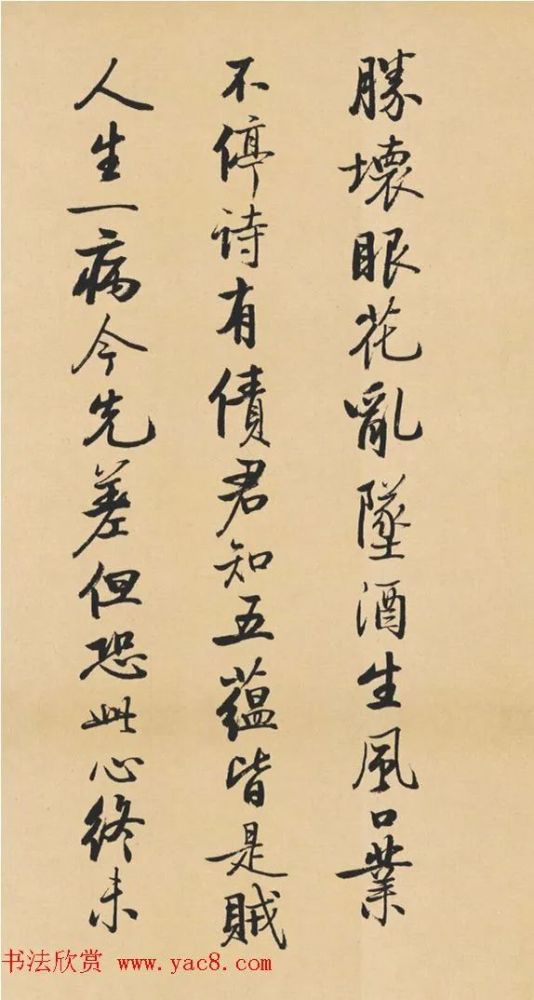 勝壞眼花亂墜酒生風口業
不停诗有債君知五蕴皆是賊
人生一病今先差但恐此心終未
书法欣赏 www.yac8.com